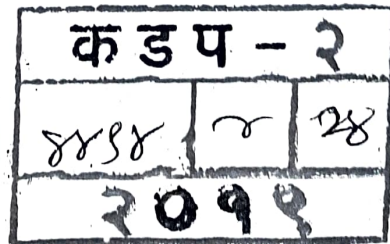 कडप - २
४४९४ २ २४
२०१९